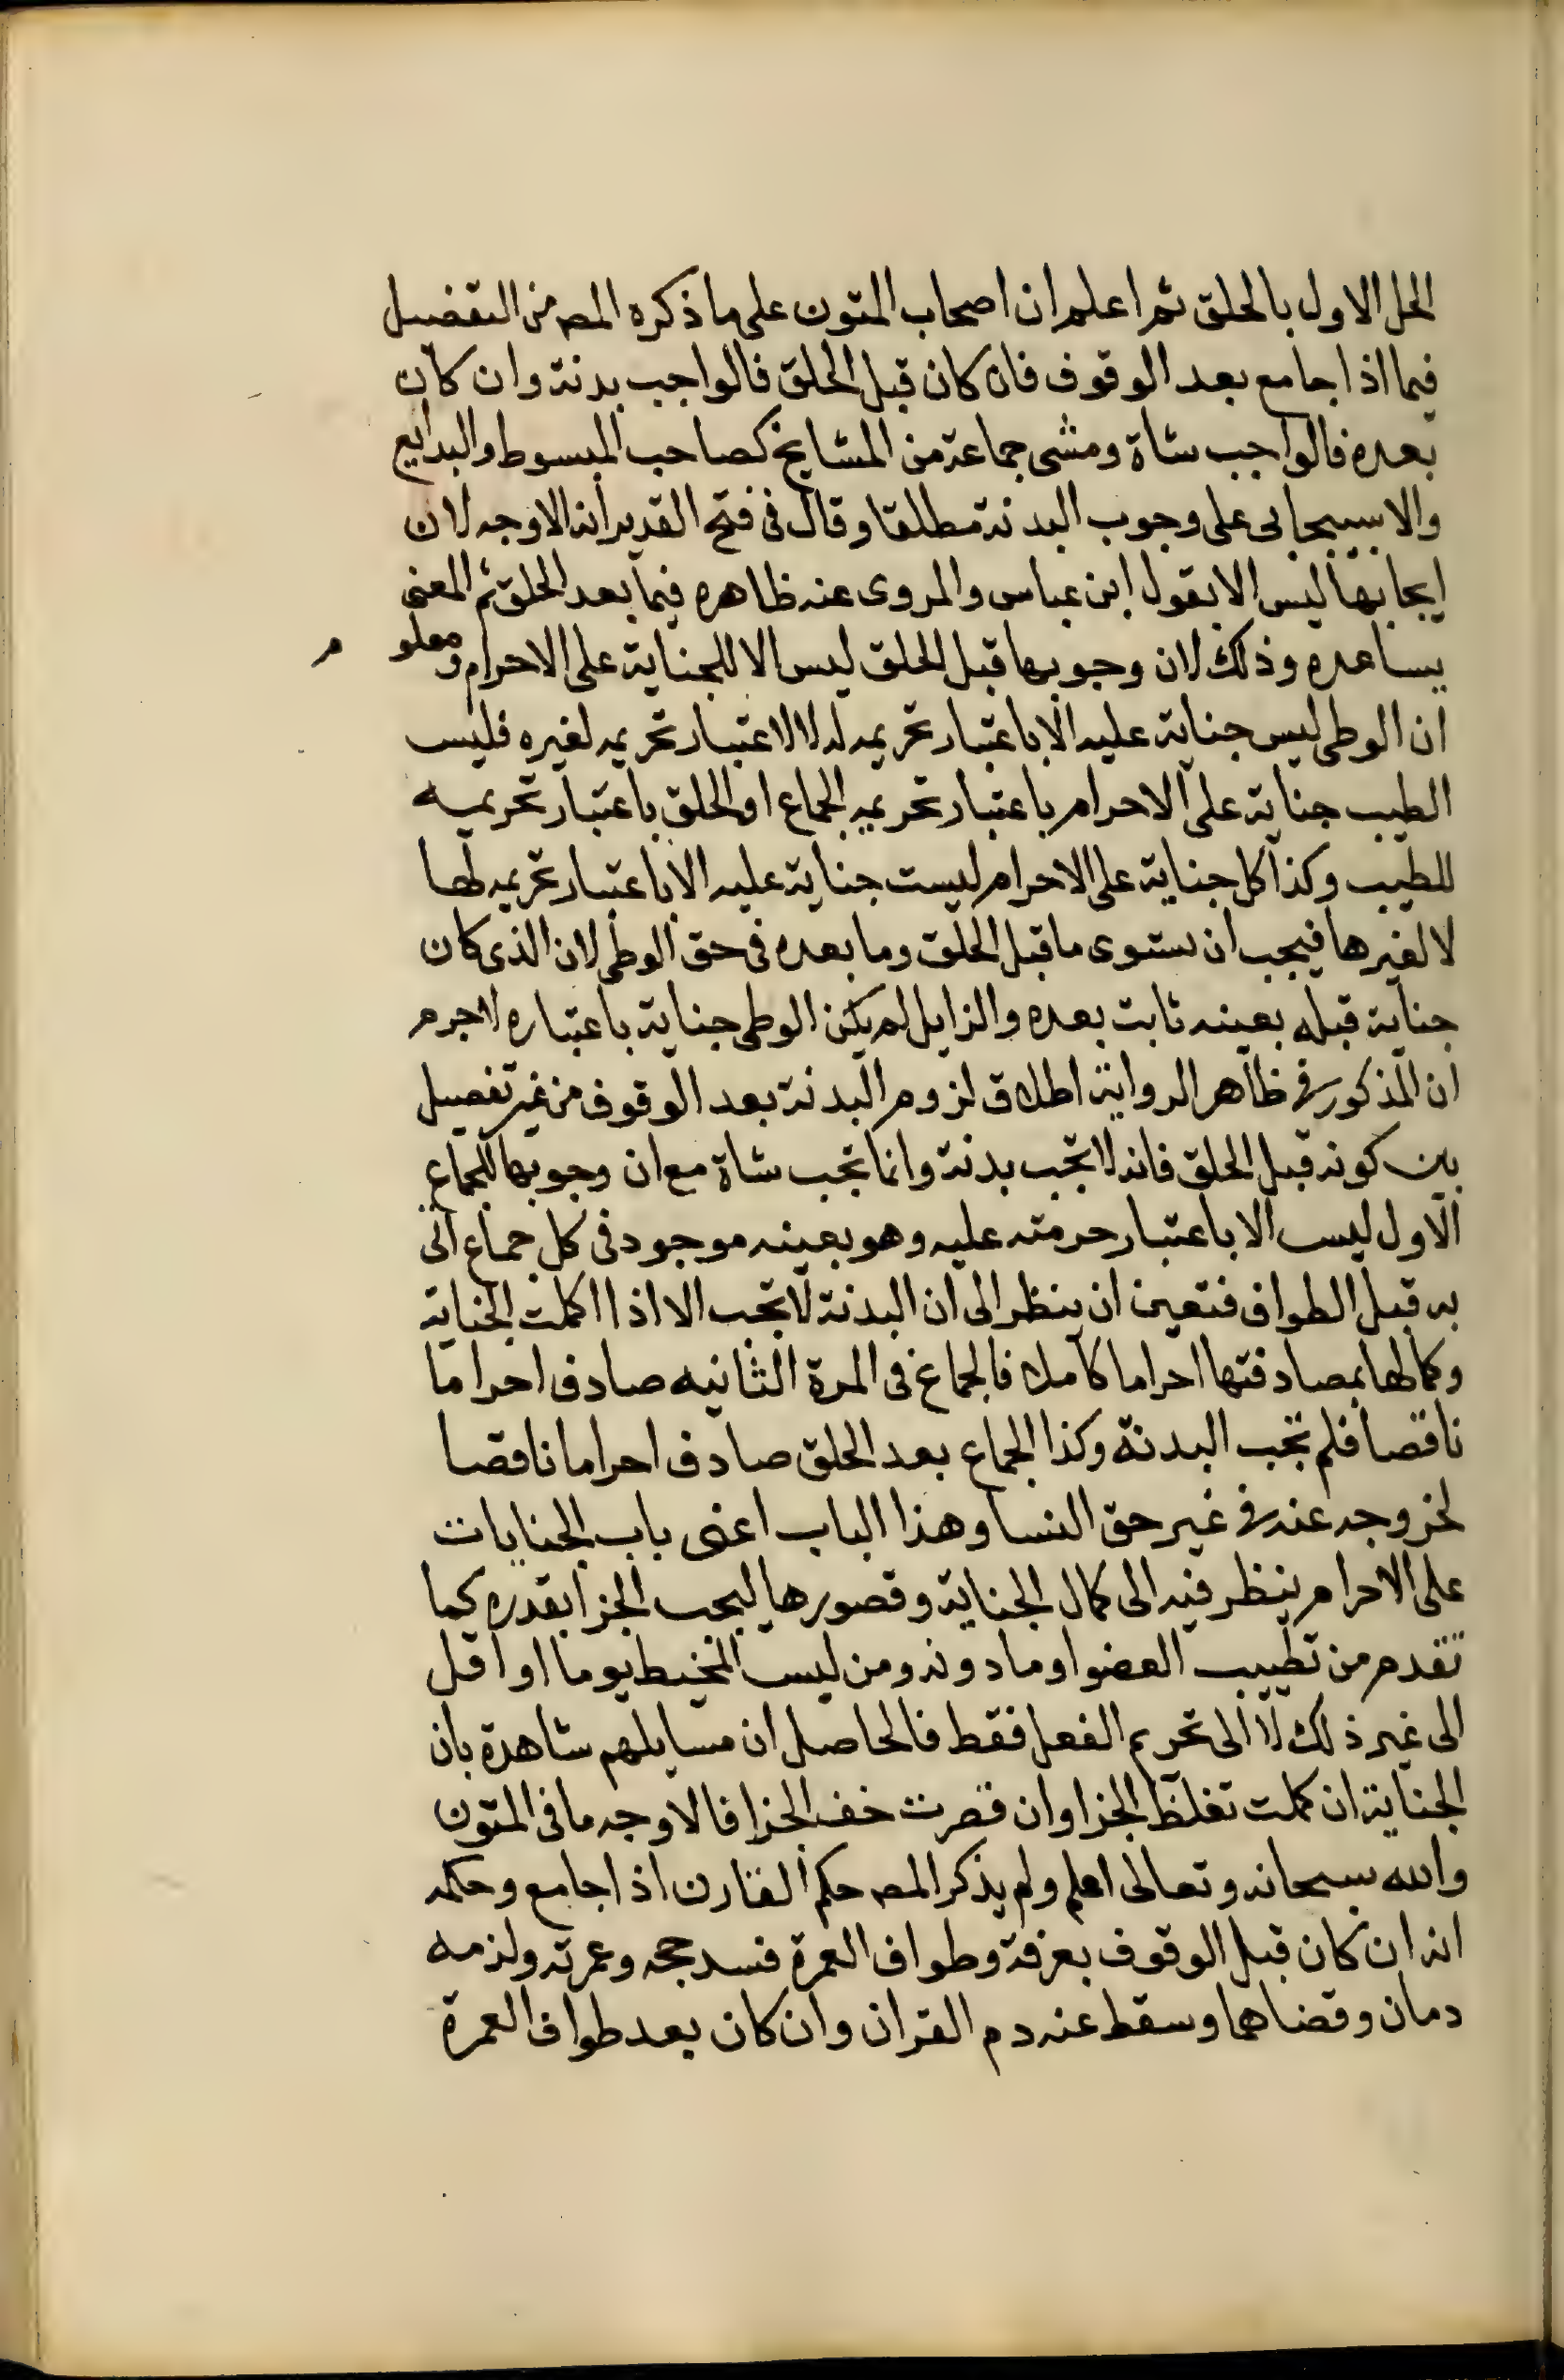 الحل الاول بالحلق ثم اعلم ان اصحاب المتون على ما ذكره المص من التفصيل
فيما اذا جامع بعد الوقوف فان كان قبل الحلق فالواجب بدنة وان كان
بعده فالواجب شاة ومشى جماعة من المشايخ كصاحب المبسوط والبدايع
والاسبيجابى على وجوب البدنة مطلقا وقال فى فتح القدير انه الاوجه لان
ايجابها ليس الا بقول ابن عباس والمروى عنه ظاهره فيما بعد الحلق ثم المعنى
يساعده وذلك لان وجوبها قبل الحلق ليس الا للجناية على الاحرام ومعلوم
ان الوطى ليس جناية عليه الا باعتبار تحريمه له لا لاعتبار تحريمه لغيره فليس
الطيب جناية على الاحرام باعتبار تحريمه الجماع او الحلق باعتبار تحريمه
للطيب وكذا كل جناية على الاحرام ليست جناية عليه الا باعتبار تحريمه لها
لا لغيرها فيجب ان يستوى ما قبل الحلق وما بعده فى حق الوطى لان الذى كان
جناية قبله بعينه ثابت بعده والزايل لم يكن الوطى جناية باعتباره لا جرم
ان المذكور فى ظاهر الرواية اطلاق لزوم البدنة بعد الوقوف من غير تفصيل
بين كونه قبل الحلق فانه لا تجب بدنة وانما تجب شاة مع ان وجوبها للجماع
الاول ليس الا باعتبار حرمته عليه وهو بعينه موجود فى كل جماع اتى
به قبل الطواف فتعين ان ينظر الى ان البدنة لا تجب الا اذا اكملت الجناية
وكمالها بمصادفتها احراما كاملا فالجماع فى المرة الثانيه صادف احراما
ناقصا فلم تجب البدنة وكذا الجماع بعد الحلق صادف احراما ناقصا
لخروجه عنه فى غير حق النسا وهذا الباب اعنى باب الجنايات
على الاحرام ينظر فيه الى كمال الجناية وقصورها ليجب الجزا بقدره كما
تقدم من تطييب العضو او ما دونه ومن لبس المخيط يوما او اقل
الى غير ذلك لا الى تحريم الفعل فقط فالحاصل ان مسايلهم شاهدة بان
الجناية ان كملت تغلظ الجزا وان قصرت خف الجزا فالاوجه ما فى المتون
والله سبحانه وتعالى اعلم ولم يذكر المص حكم القارن اذا جامع وحكمه
انه ان كان قبل الوقوف بعرفة وطواف العمرة فسد حجه وعمرته ولزمه
دمان وقضاهما وسقط عنه دم القران وان كان بعد طواف العمرة